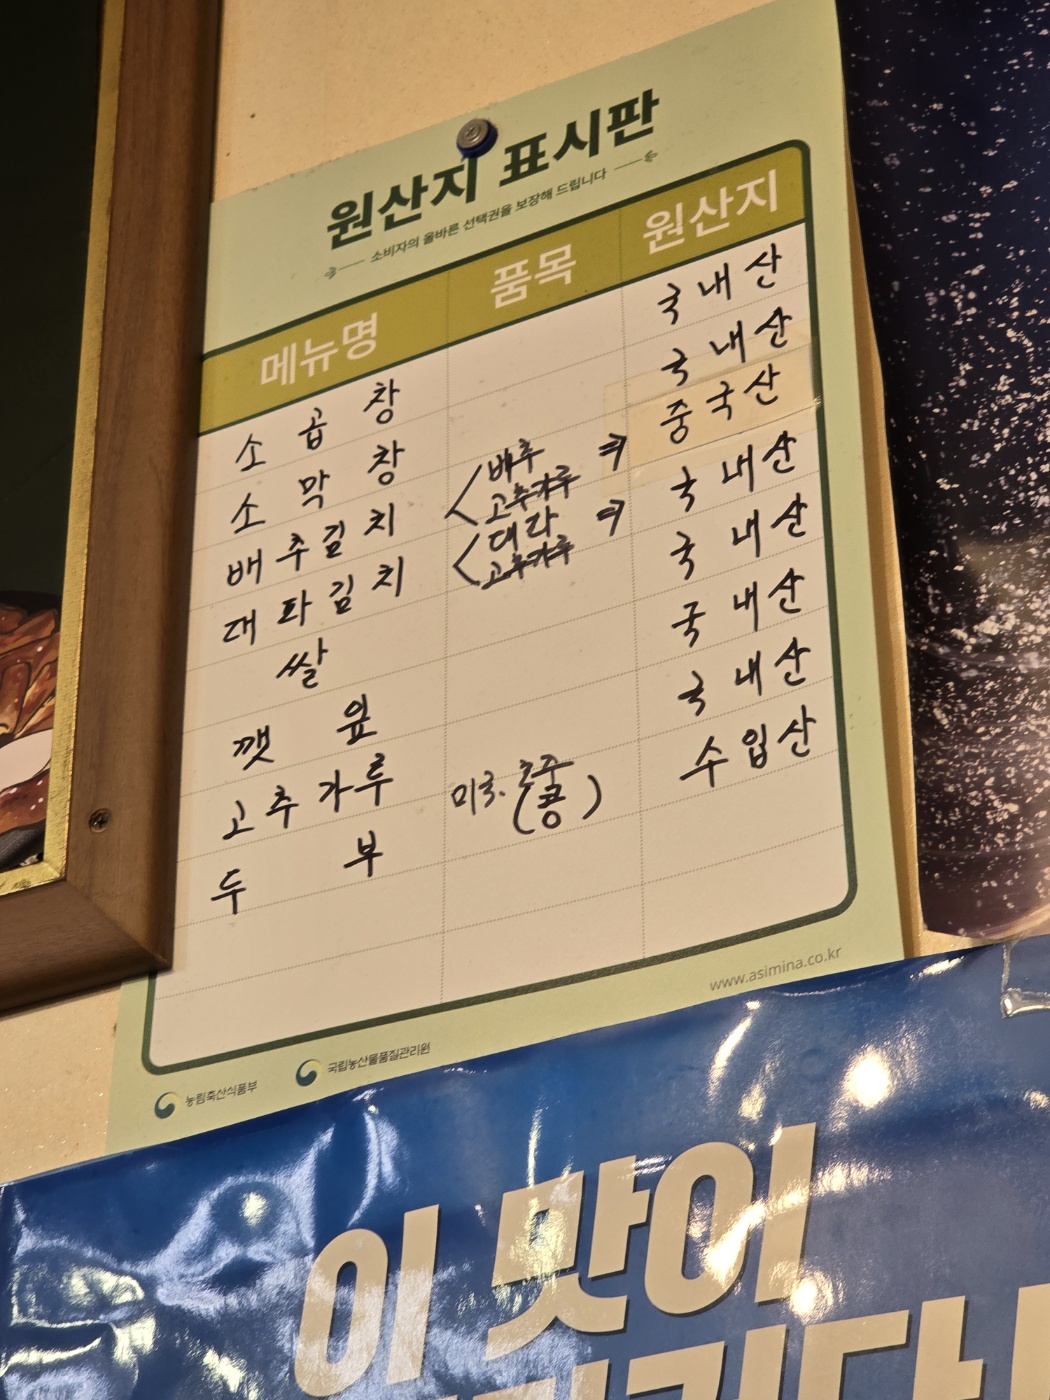 원산지 표시판
소비자의 올바른 선택권을 보장해 드립니다
메뉴명 품목 원산지
소 곱 창 국내산
소 막 창 국내산
배추김치 배추 고추가루 중국산
대파김치 대파 고추가루 국내산
쌀 국내산
깻 잎 국내산
고추가루 국내산
두 부 미국. 호주 (콩) 수입산
www.asimina.co.kr
농림축산식품부 국립농산물품질관리원
이 맛이